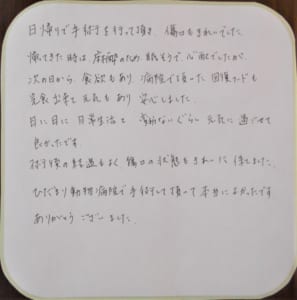 日帰りで手術を行って頂き、傷口もきれいでした。
帰ってきた時は、麻酔のため 眠そうで、心配でしたが、
次の日から、食欲もあり、病院で頂いた 回復フードも
完食出来て 元気もあり 安心しました。
日に日に 日常生活と 変わらないぐらい 元気に 過ごせて
良かったです。
術後の経過もよく 傷口の状態もきれいに 保てました。
ひだまり動物病院で手術して頂って本当によかったです
ありがとう ございました。